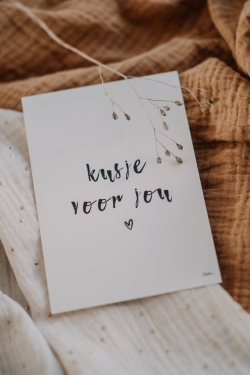 kusje
voor jou